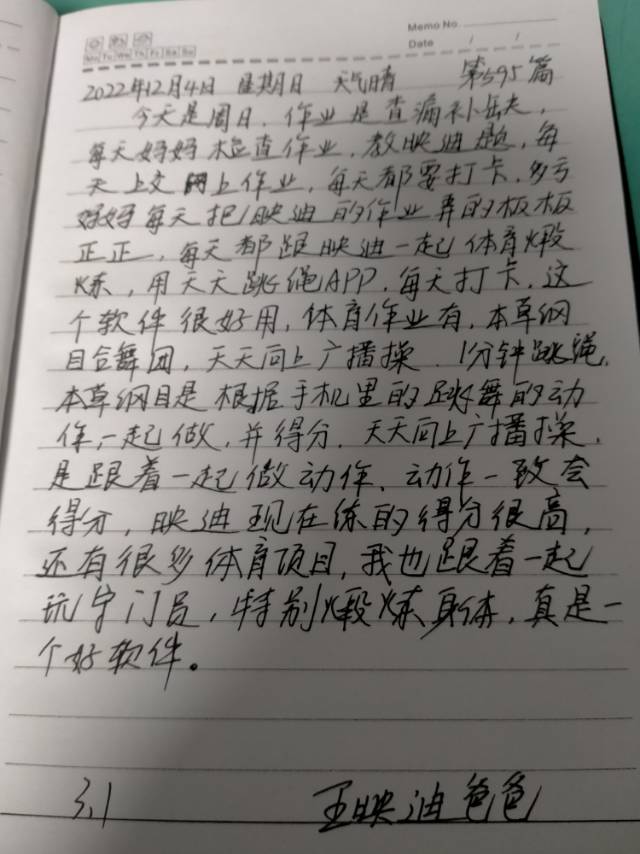 Memo No.
Mo Tu We Th Fr Sa Su
Date / /
2022年12月4日 星期日 天气晴 第595篇
今天是周日，作业是查漏补缺，
每天妈妈检查作业，教映迪题，每
天上交网上作业，每天都要打卡，多亏
妈妈每天把映迪的作业弄的板板
正正，每天都跟映迪一起体育煅
炼，用天天跳绳APP，每天打卡，这
个软件很好用，体育作业有，本草纲
目合舞团，天天向上广播操，1分钟跳绳，
本草纲目是根据手机里的跳舞的动
作，一起做，并得分，天天向上广播操，
是跟着一起做动作，动作一致会
得分，映迪现在练的得分很高，
还有很多体育项目，我也跟着一起
玩守门员，特别煅炼身体，真是一
个好软件。
3.1 王映迪爸爸